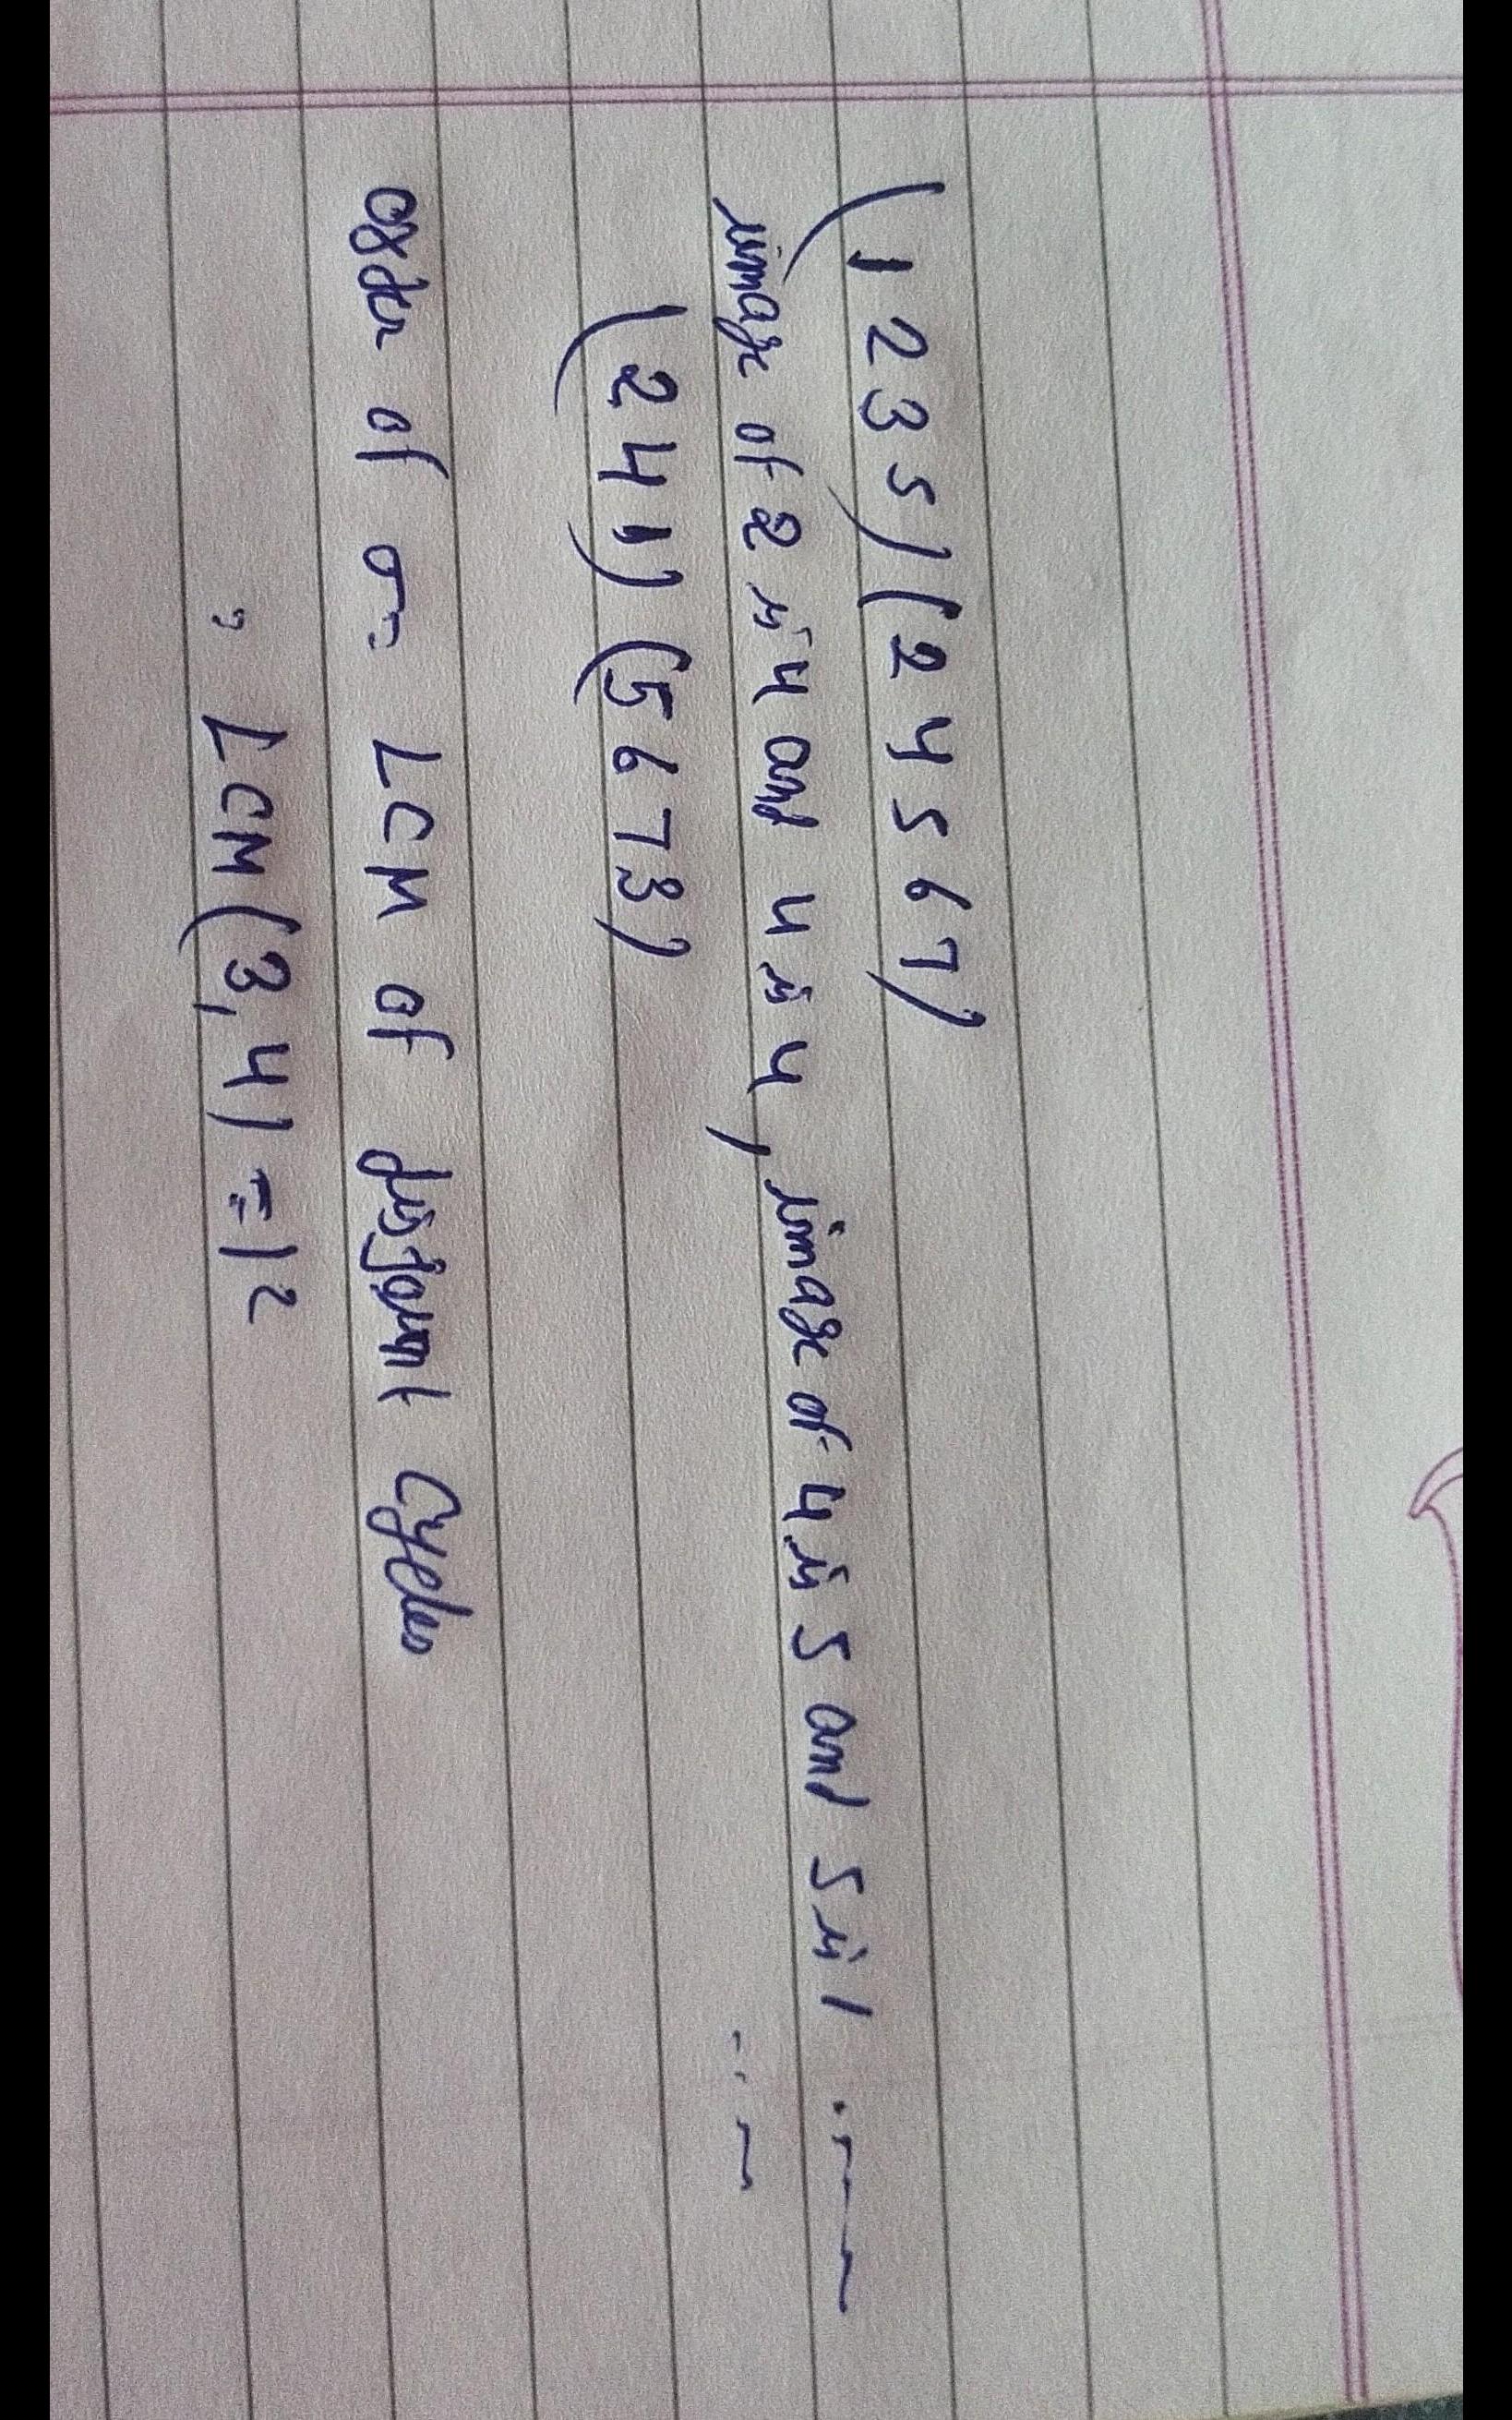 (1 2 3 5) (2 4 5 6 7)
image of 2 is 4 and 4 is 4, image of 4 is 5 and 5 is 1 .----
(2 4 1) (5 6 7 3)
order of σ = LCM of disjoint cycles
= LCM(3,4) = 12